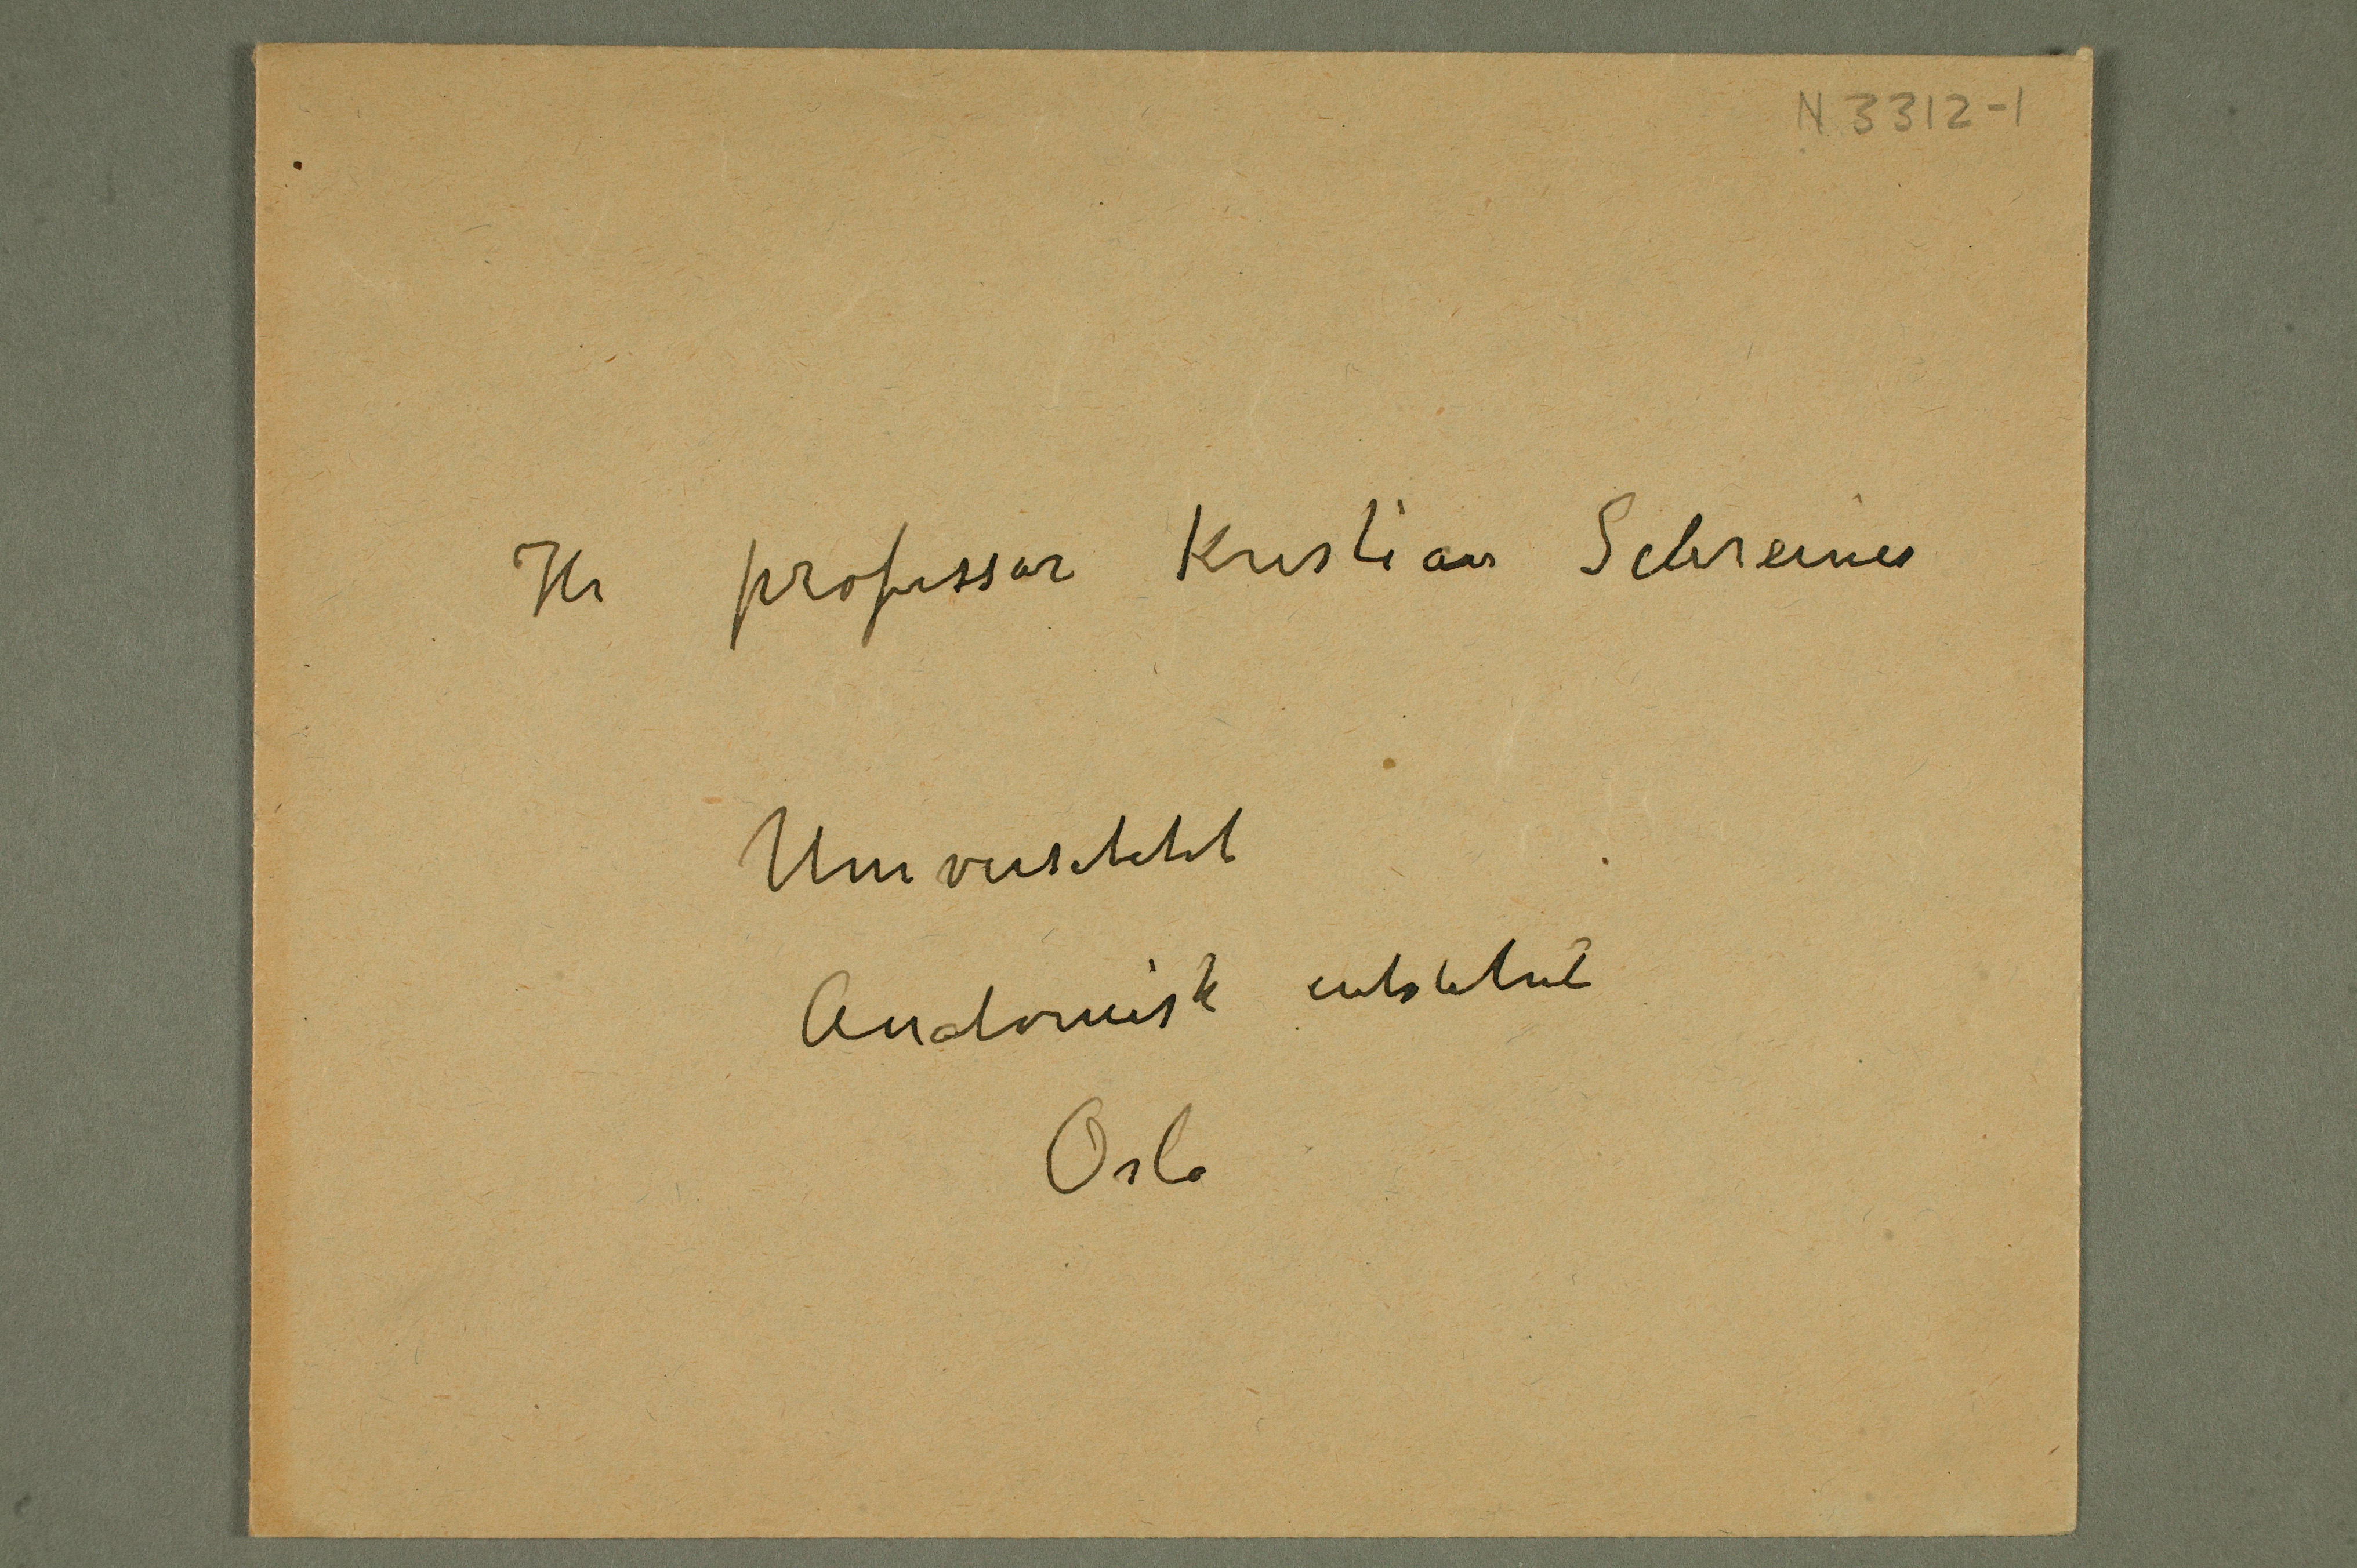 N 3312-1
Hr professor Kristian Schreiner
Universitetet
Anatomisk institut
Oslo